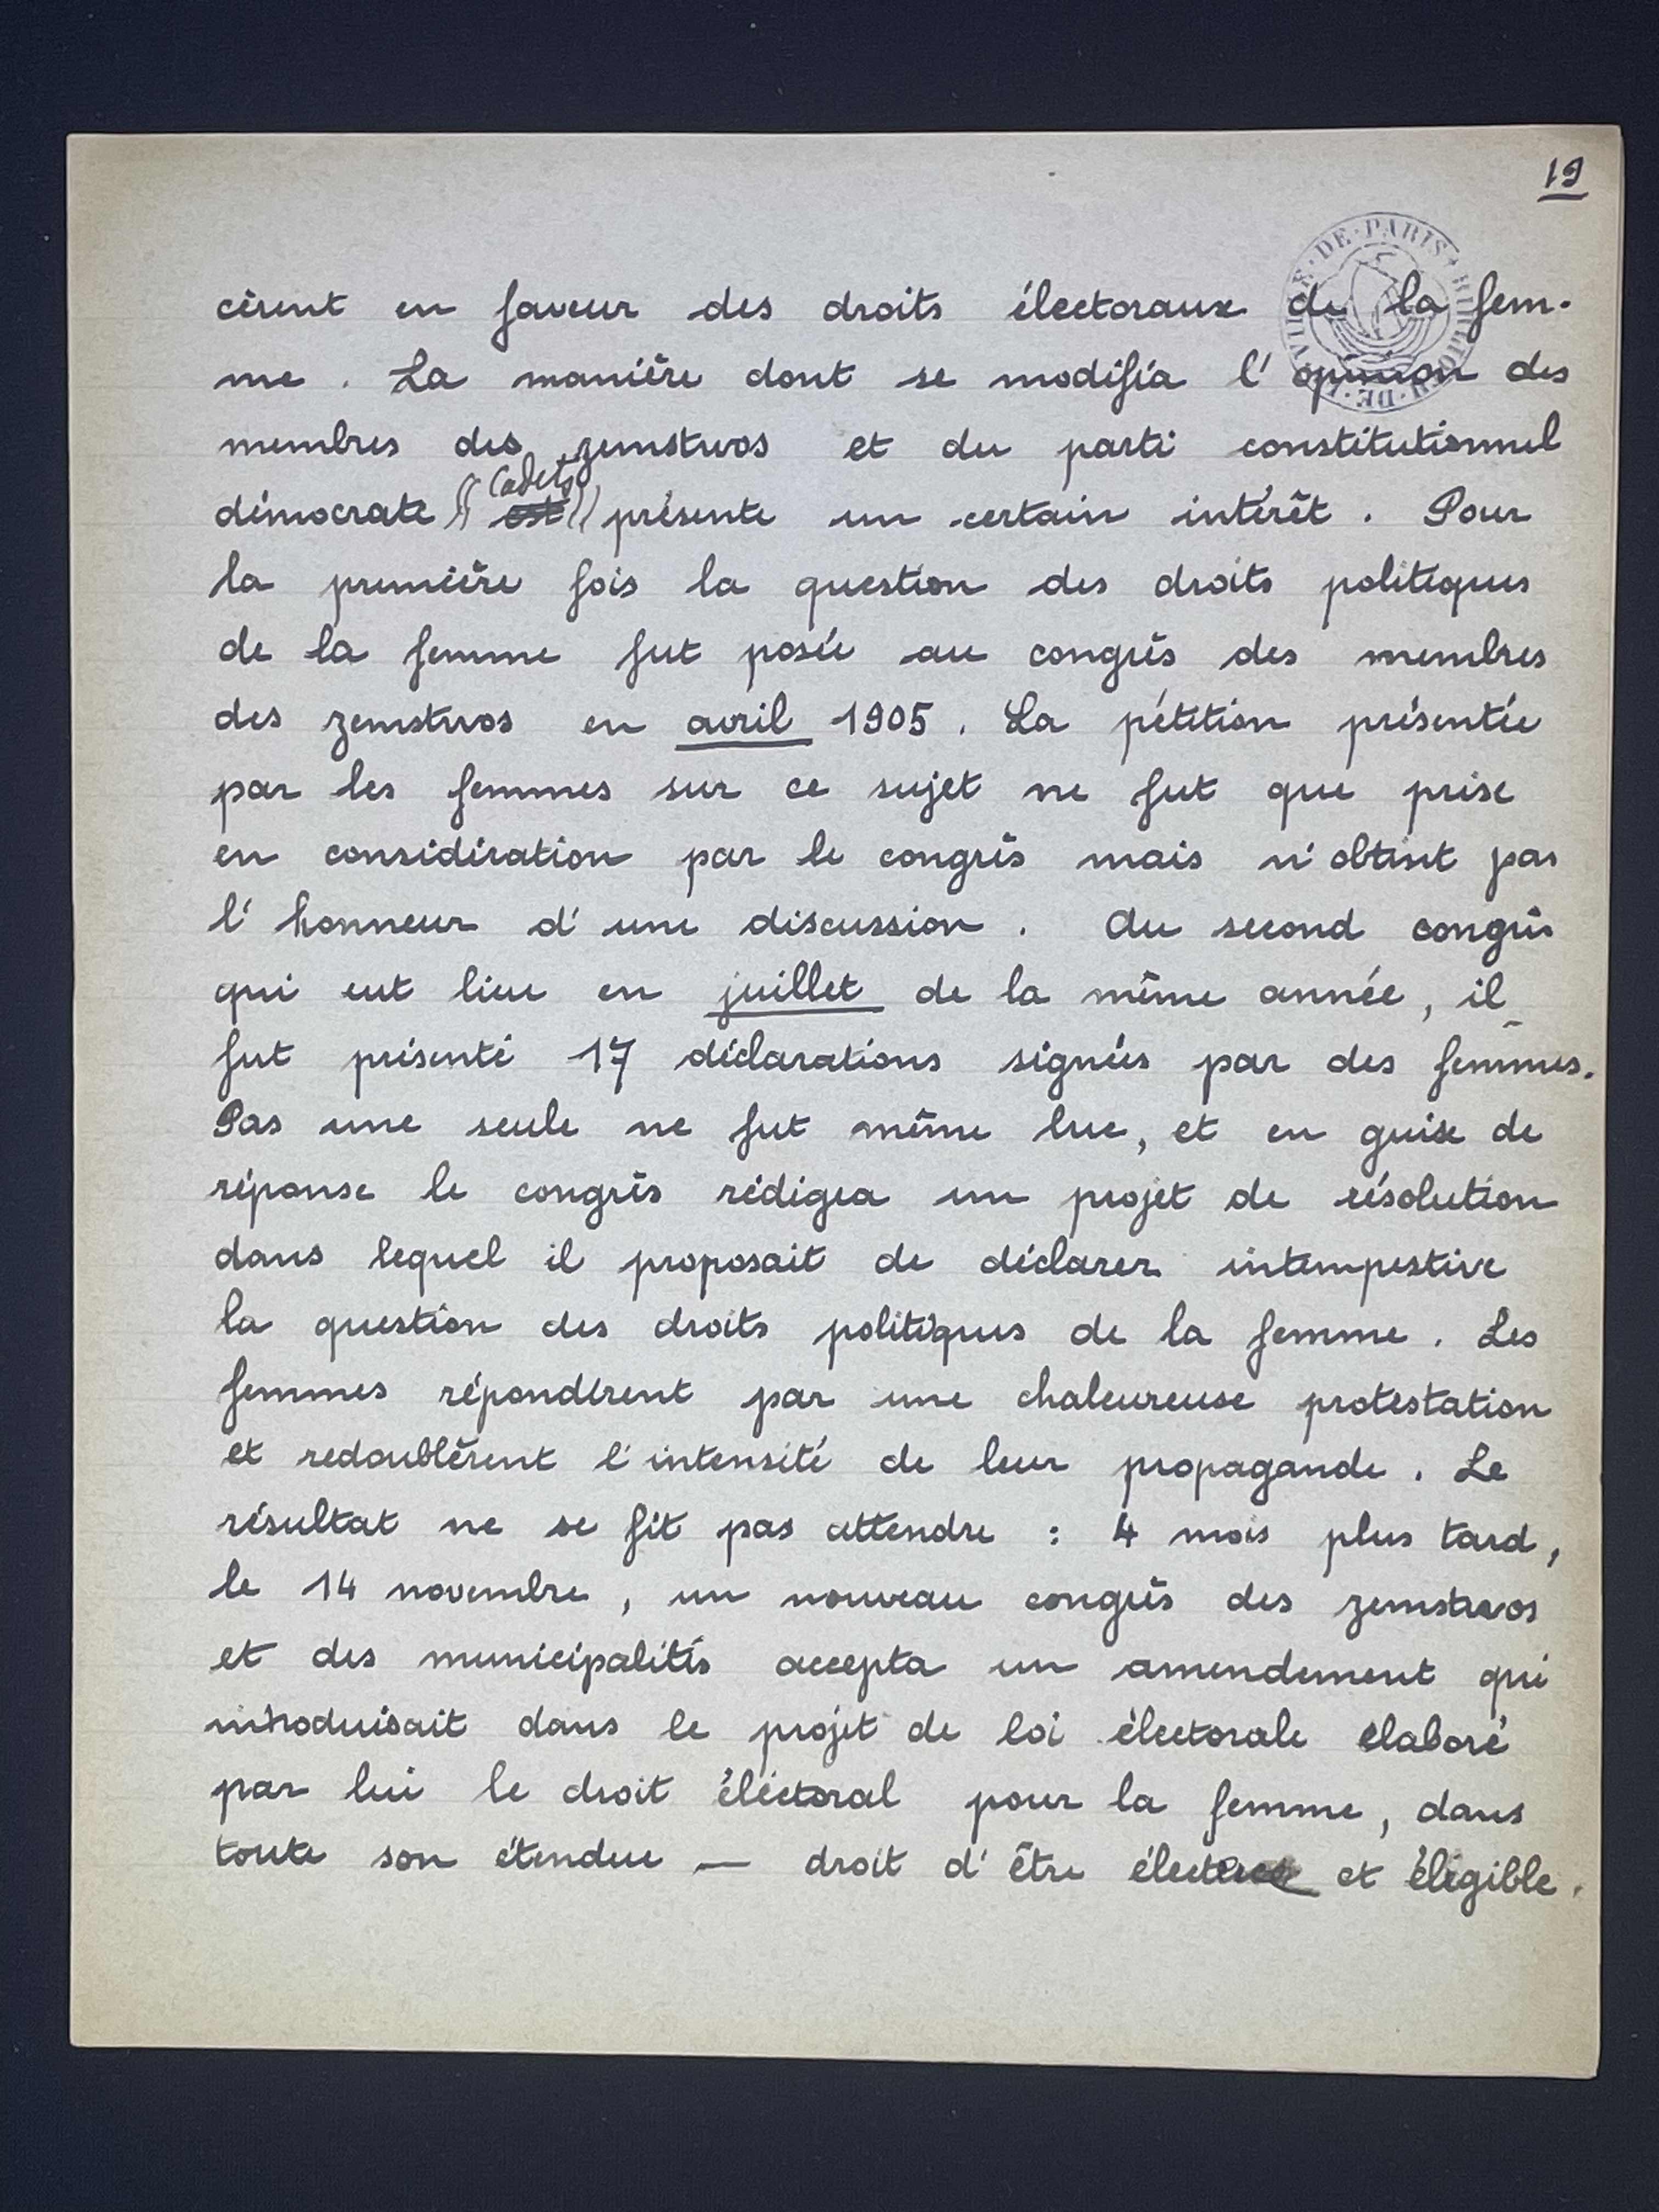 19
VILLE DE PARIS
cèrent en faveur des droits électoraux de la fem-
me . La manière dont se modifia l'opinion des
membres des zemstvos et du parti constitutionnel
Cadets
démocrate (( est )) présente un certain intérêt . Pour
la première fois la question des droits politiques
de la femme fut posée au congrès des membres
des zemstvos en avril 1905 . La pétition présentée
par les femmes sur ce sujet ne fut que prise
en considération par le congrès mais n'obtint pas
l'honneur d'une discussion . Au second congrès
qui eut lieu en juillet de la même année, il
fut présenté 17 déclarations signées par des femmes.
Pas une seule ne fut même lue, et en guise de
réponse le congrès rédigea un projet de résolution
dans lequel il proposait de déclarer intempestive
la question des droits politiques de la femme . Les
femmes répondirent par une chaleureuse protestation
et redoublèrent l'intensité de leur propagande . Le
résultat ne se fit pas attendre : 4 mois plus tard,
le 14 novembre , un nouveau congrès des zemstvos
et des municipalités accepta un amendement qui
introduisait dans le projet de loi électorale élaboré
par lui le droit électoral pour la femme, dans
toute son étendue — droit d'être et éligible .